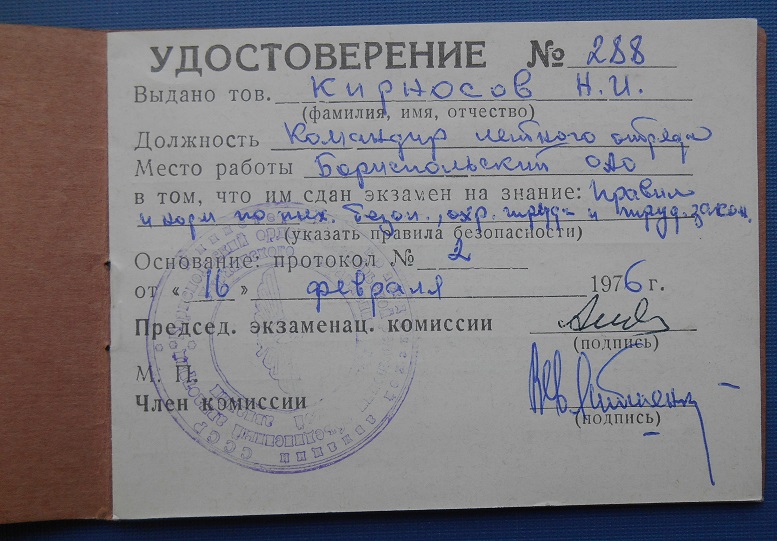 УДОСТОВЕРЕНИЕ № 288
Выдано тов. Кирносов Н.И.
(фамилия, имя, отчество)
Должность Командир летного отряда
Место работы Бориспольский ОАО
в том, что им сдан экзамен на знание: Правил
и норм по тех. безоп., охр. труда и труд. закон.
(указать правила безопасности)
Основание: протокол № 2
от « 16 » февраля 1976 г.
Председ. экзаменац. комиссии
(подпись)
М. П.
Член комиссии
(подпись)
СССР